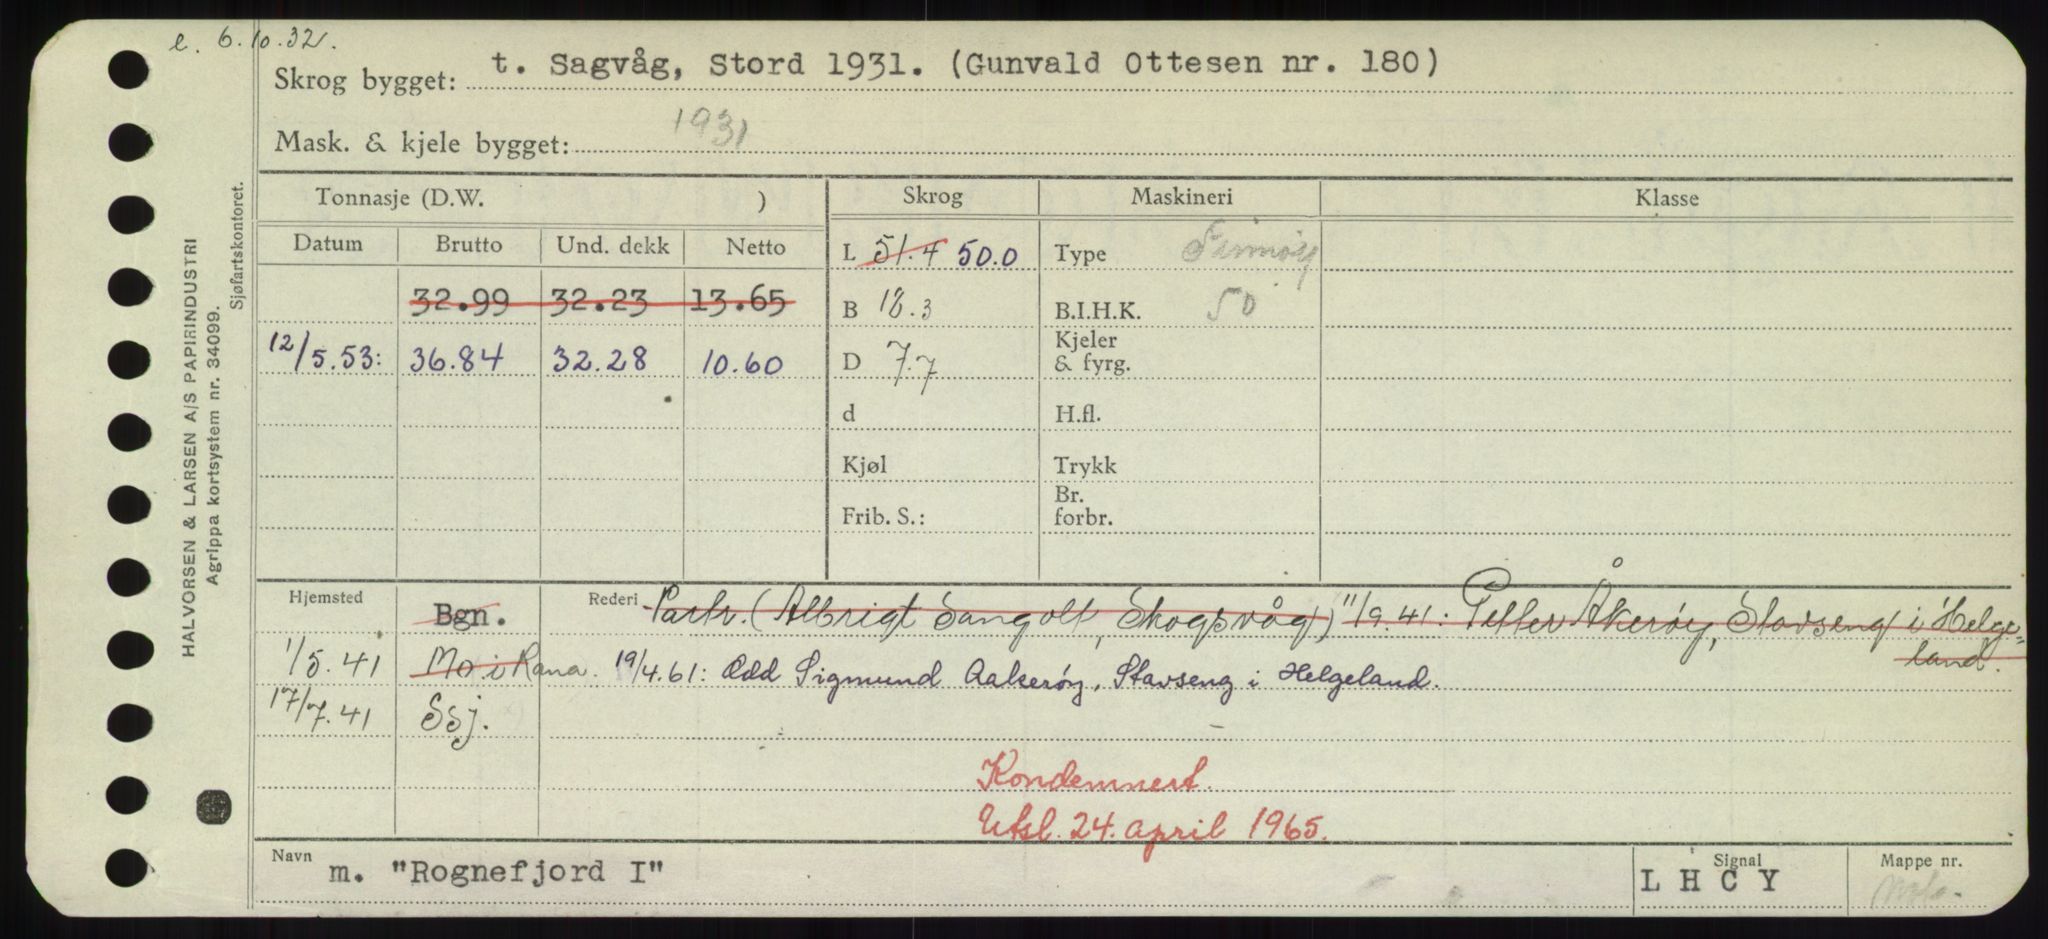 e. 6.10.32.
Skrog bygget: t. Sagvåg, Stord 1931. (Gunvald Ottesen nr. 180)
Mask. & kjele bygget: 1931
Tonnasje (D.W. ) Skrog Maskineri Klasse
Datum Brutto Und. dekk Netto L 51.4 50.0 Type
32.99 32.23 13.65 B 18.3 B.I.H.K. 50
12/5.53: 36.84 32.28 10.60 D 7.7 Kjeler & fyrg.
d H.fl.
Kjøl Trykk
Frib. S.: Br. forbr.
Hjemsted Bgn. Rederi Partr. (Albrigt Sangolt, Skogsvåg) 11/9.41: Petter Åkerøy, Stavseng i Helge-
land.
1/5.41 Mo i Rana. 19/4.61: Odd Sigmund Aakerøy, Stavseng i Helgeland.
17/7.41 Ssj.
Kondemnert.
Utsl. 24. april 1965.
Navn m. "Rognefjord I" Signal LHCY Mappe nr.
HALVORSEN & LARSEN A/S PAPIRINDUSTRI
Agrippa kortsystem nr. 34099.
Sjøfartskontoret.